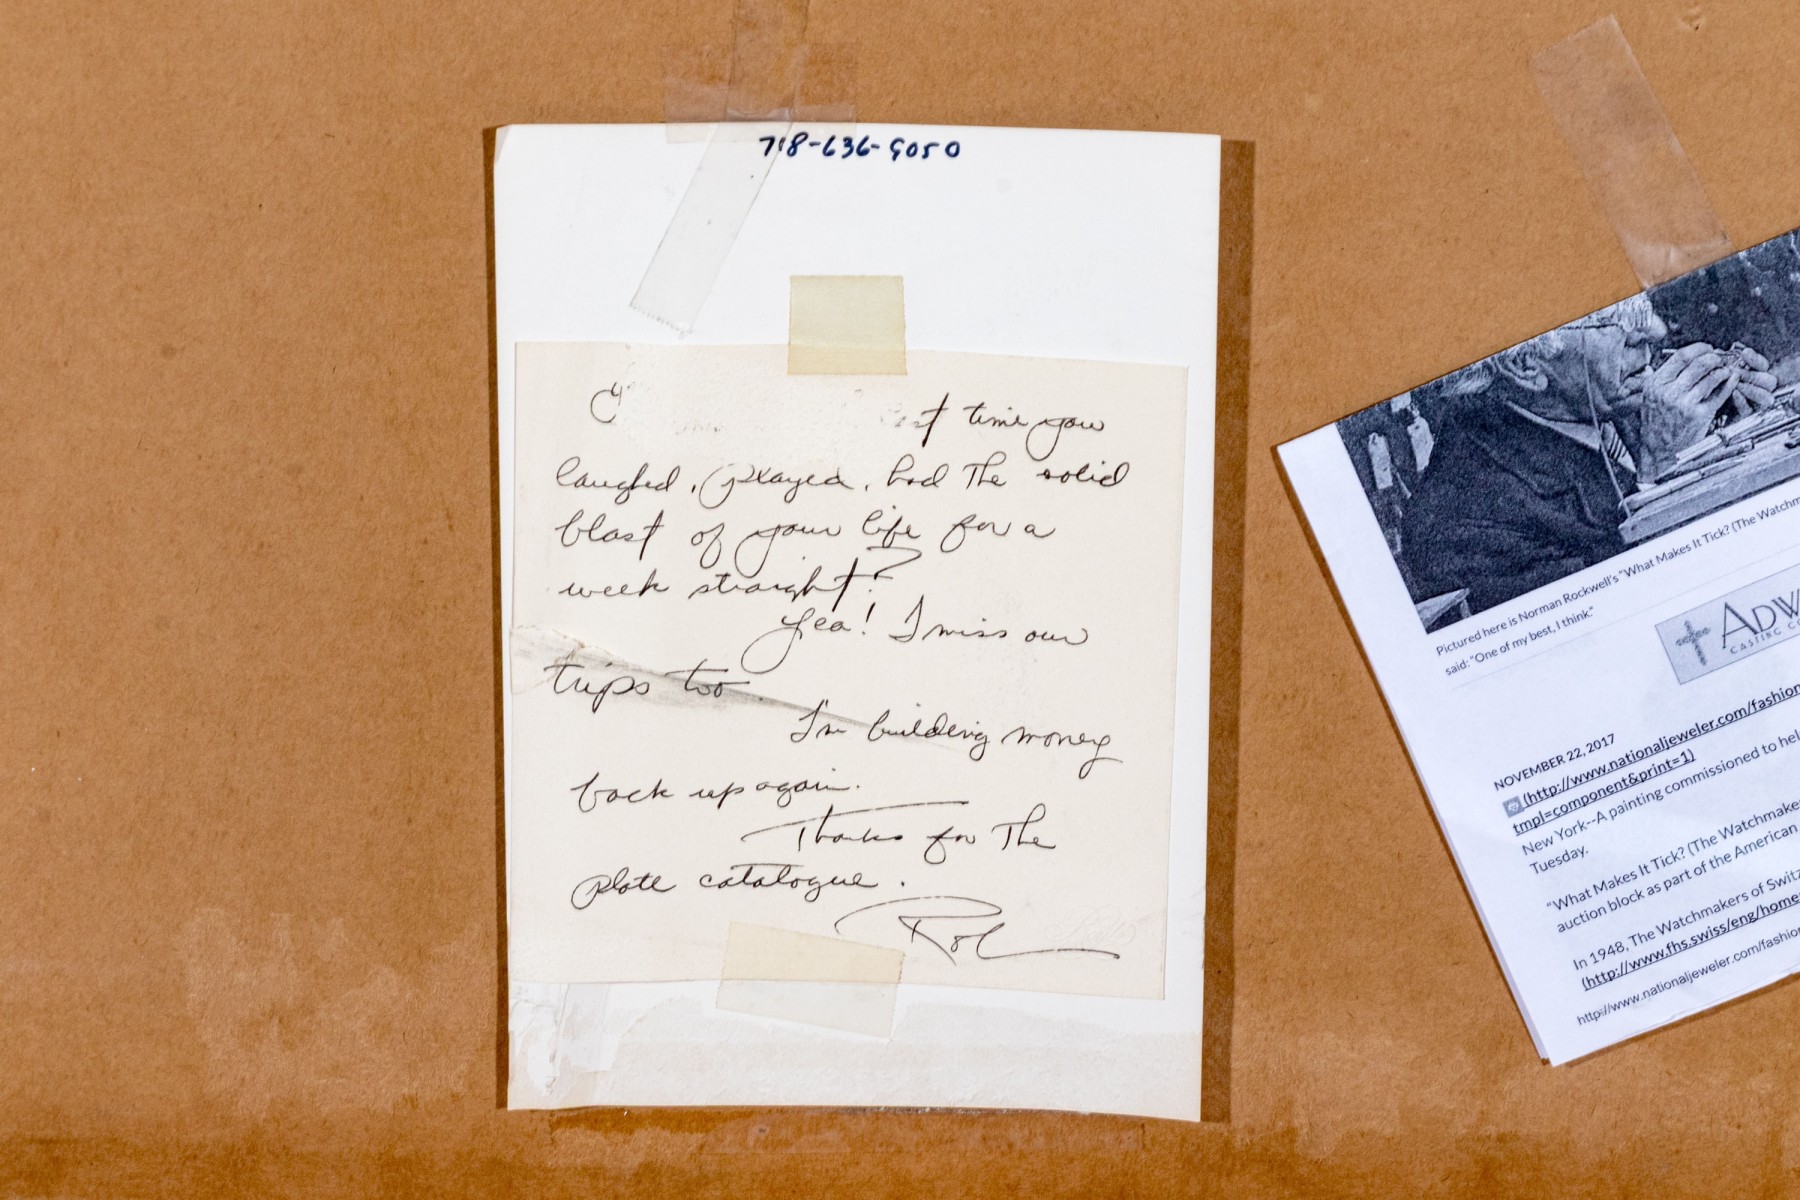 718-636-9050
time you
laughed, played, had The solid
blast of your life for a
week straight?
Yea! I miss our
trips too.
I'm building money
back up again.
Thanks for The
plate catalogue.
Rob
Pictured here is Norman Rockwell's "What Makes It Tick? (The Watchm
said: "One of my best, I think."
ADW
CASTING CO
NOVEMBER 22, 2017
(http://www.nationaljeweler.com/fashion
tmpl=component&print=1)
New York--A painting commissioned to hel
Tuesday.
"What Makes It Tick? (The Watchmake
auction block as part of the American
In 1948, The Watchmakers of Switz
(http://www.fhs.swiss/eng/home
http://www.nationaljeweler.com/fashion